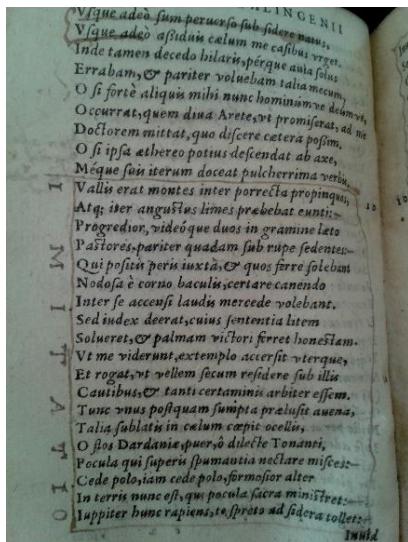 PALINGENII
Vsque adeò sum peruerso sub sidere natus,
Vsque adeò assiduis cælum me casibus vrget.
Inde tamen decedo hilaris, pérque auia solus
Errabam, & pariter voluebam talia mecum,
O si fortè aliquis mihi nunc hominúmve deûmve,
Occurrat, quem diua Arete, vt promiserat, ad me
Doctorem mittat, quo discere cætera possim.
O si ipsa æthereo potius descendat ab axe,
Méque suis iterum doceat pulcherrima verbis.
Vallis erat montes inter porrecta propinquos,
Atq; iter angustus limes præbebat eunti: 10
Progredior, videóque duos in gramine læto
Pastores, pariter quadam sub rupe sedentes:
Qui positis peris iuxtà, & quos ferre solebant
Nodosa è corno baculis, certare canendo
Inter se accensi laudis mercede volebant.
Sed iudex deerat, cuius sententia litem
Solueret, & palmam victori ferret honestam.
Vt me viderunt, extemplo accersit vterque,
Et rogat, vt vellem secum residere sub illis
Cautibus, & tanti certaminis arbiter essem.
Tunc vnus postquam sumpta prælusit auena,
Talia sublatis in cælum cœpit ocellis,
O flos Dardaniæ, puer, ô dilecte Tonanti,
Pocula qui superis spumantia nectare misces:
Cede polo, iam cede polo, formosior alter
In terris nunc est, qui pocula sacra ministret:
Iuppiter hunc rapiens, te spreto ad sidera tollet:
Inuid
IMITATIO